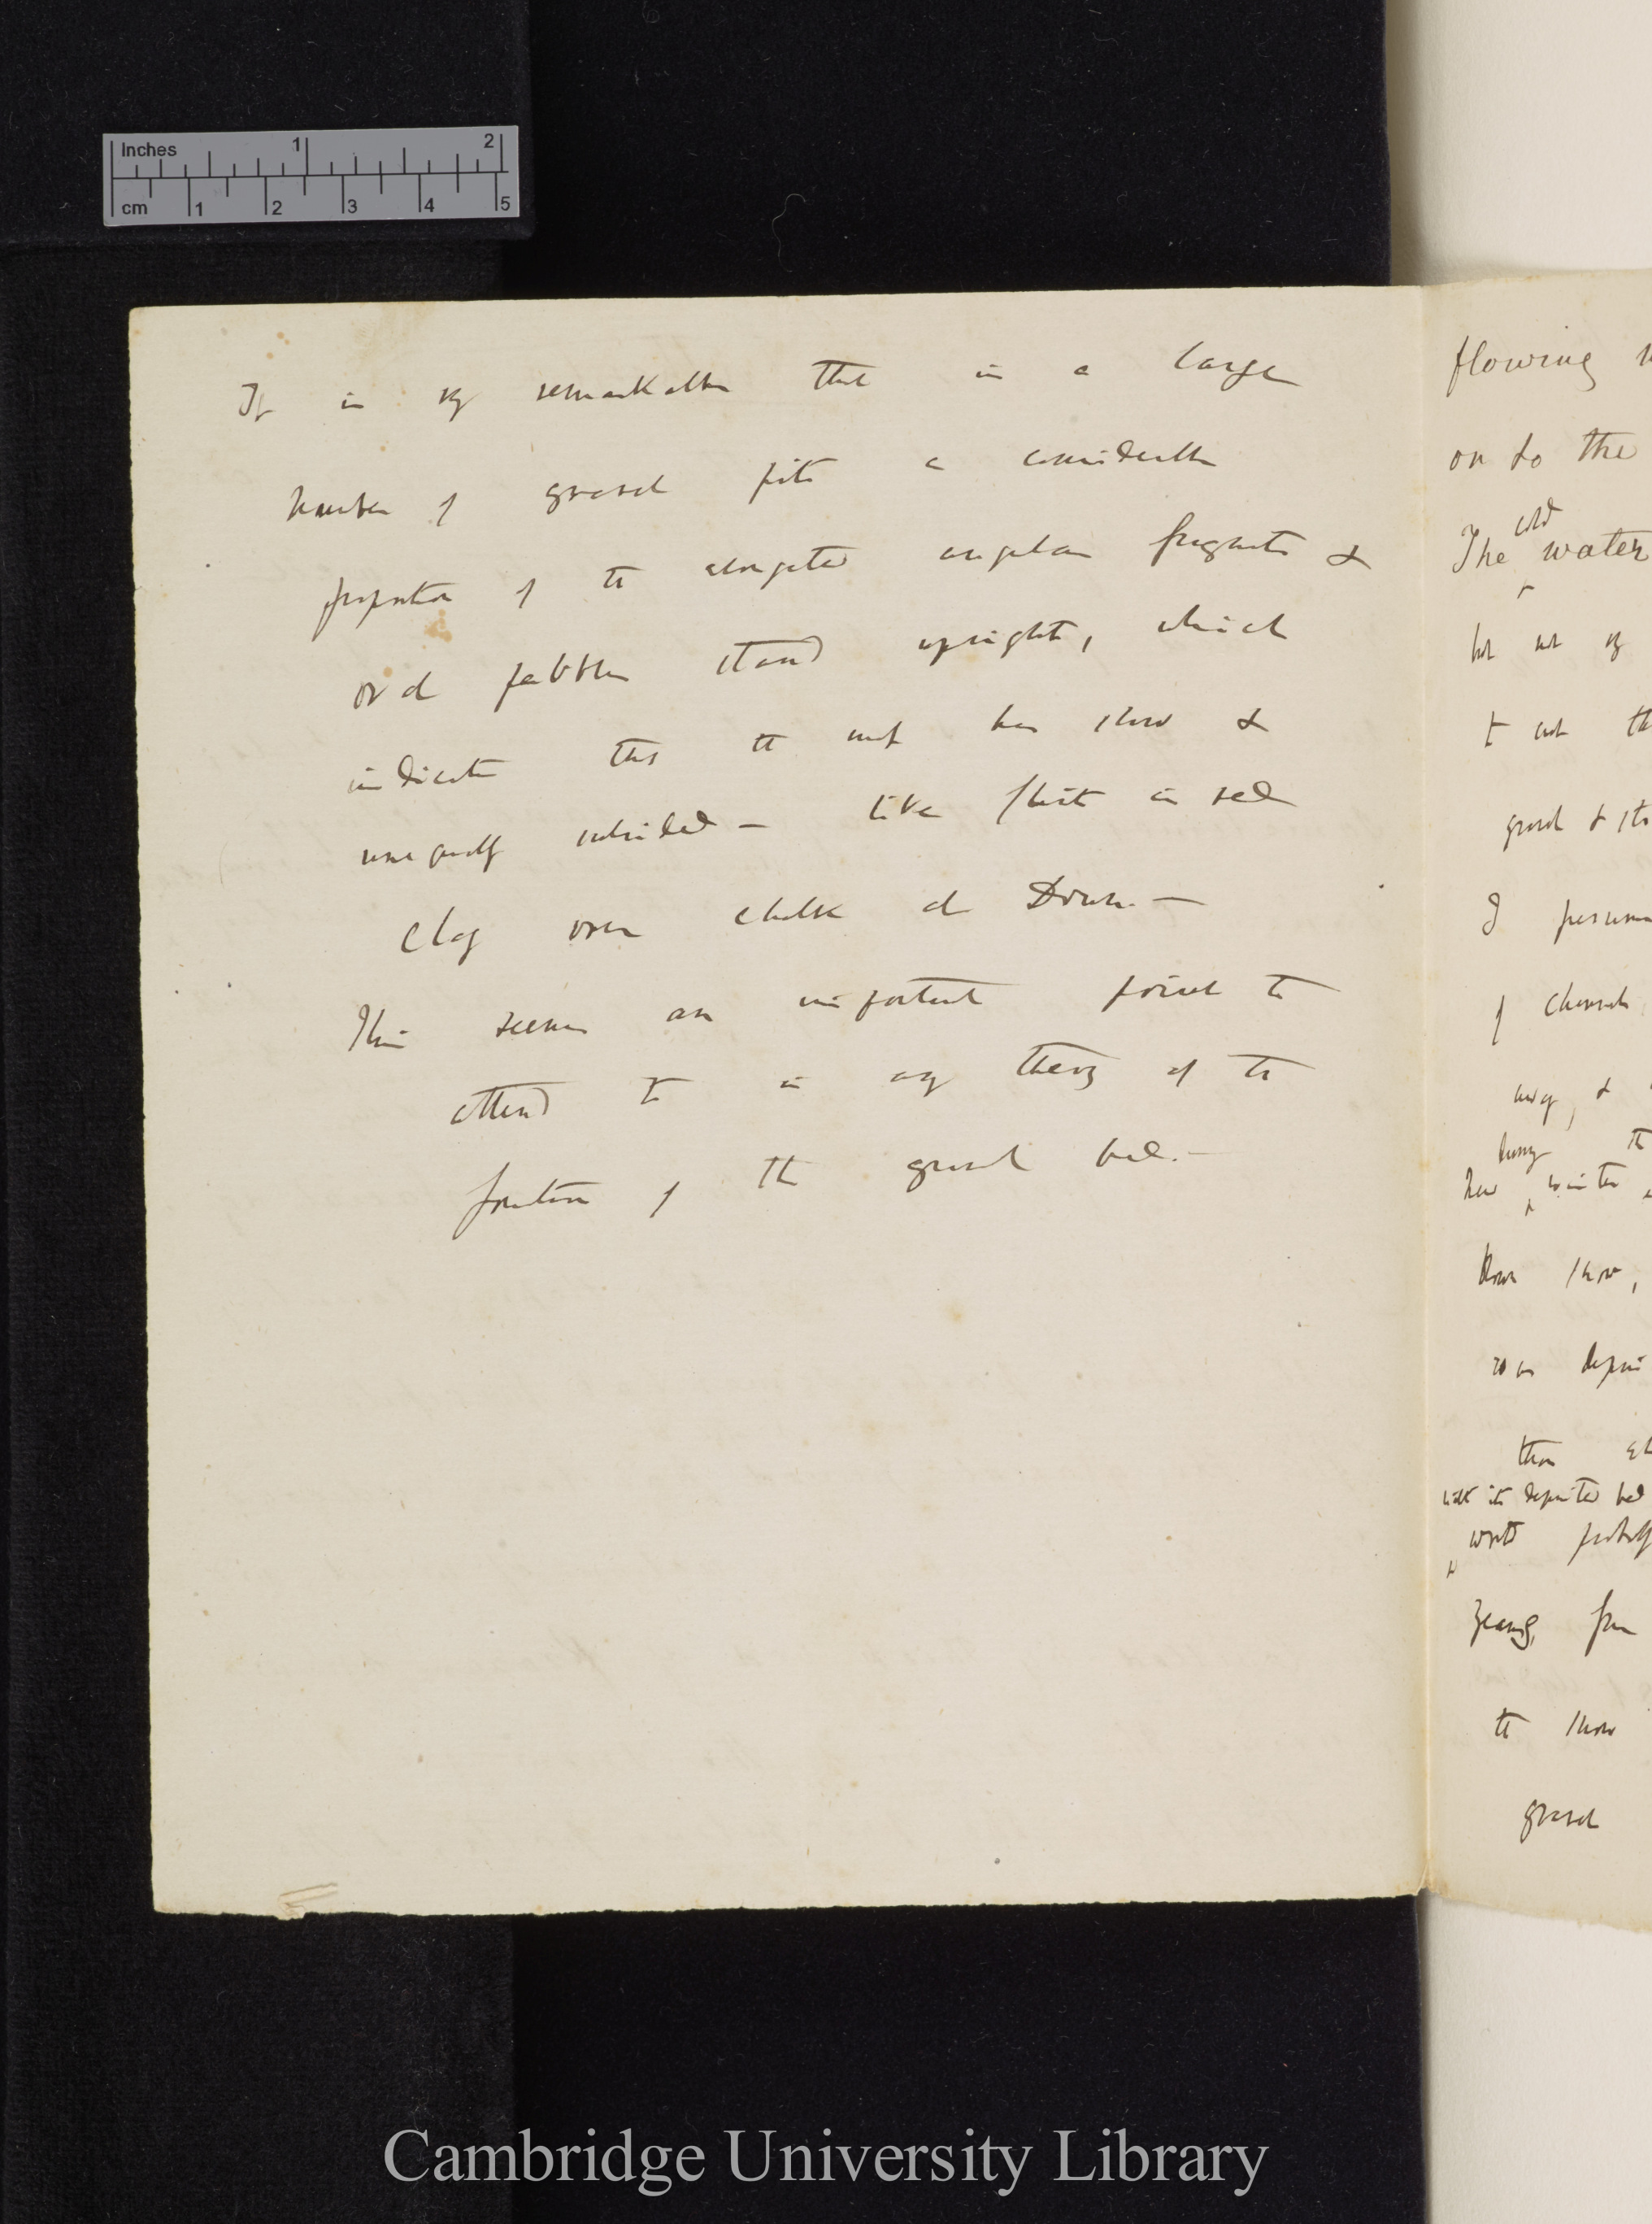 Inches 1 2
cm 1 2 3 4 5
It is very remarkable that in a large
number of gravel pits a considerable
proportion of the elongated angular fragments &
oval pebbles stand upright, which
indicates that the must have &
unequally subsided — like flints in red
clay over chalk at Down. —
This seems an important point to
attend to in any theory of the
formation of the gravel beds. —
flowing
on to the
cold
The water
but not
to not
gravel &
I
of channels
away, &
during
winter
snow,
was
than
with its deposited bed
would
years, from
the snow
gravel
Cambridge University Library